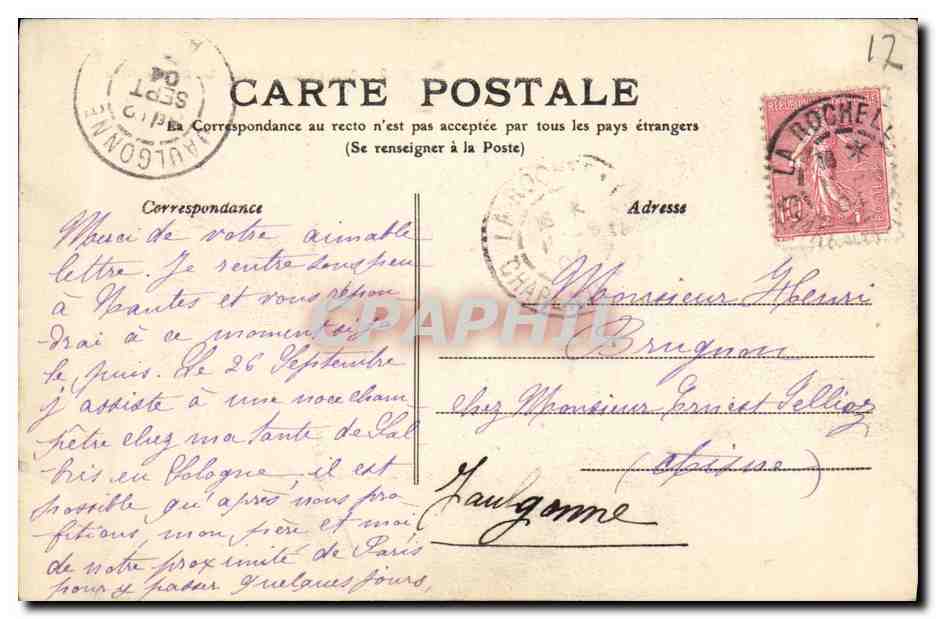 12
JAULGONNE
SEPT
04
CARTE POSTALE
La Correspondance au recto n'est pas acceptée par tous les pays étrangers
(Se renseigner à la Poste)
LA ROCHELLE
Correspondance
Adresse
Merci de votre aimable
lettre. Je rentre sous peu
à Nantes et vous répon
drai à ce moment
le puis. Le 26 Septembre
j'assiste à une noce cham-
pêtre chez ma tante de Sal
bris en Sologne, il est
possible qu'après nous pro
fitions, mon père et moi
de notre proximité de Paris
pour y passer quelques jours,
Monsieur Henri
Brugnon
chez Monsieur Ernest Jellioz
(Aisne)
Jaulgonne
CPAPHIL